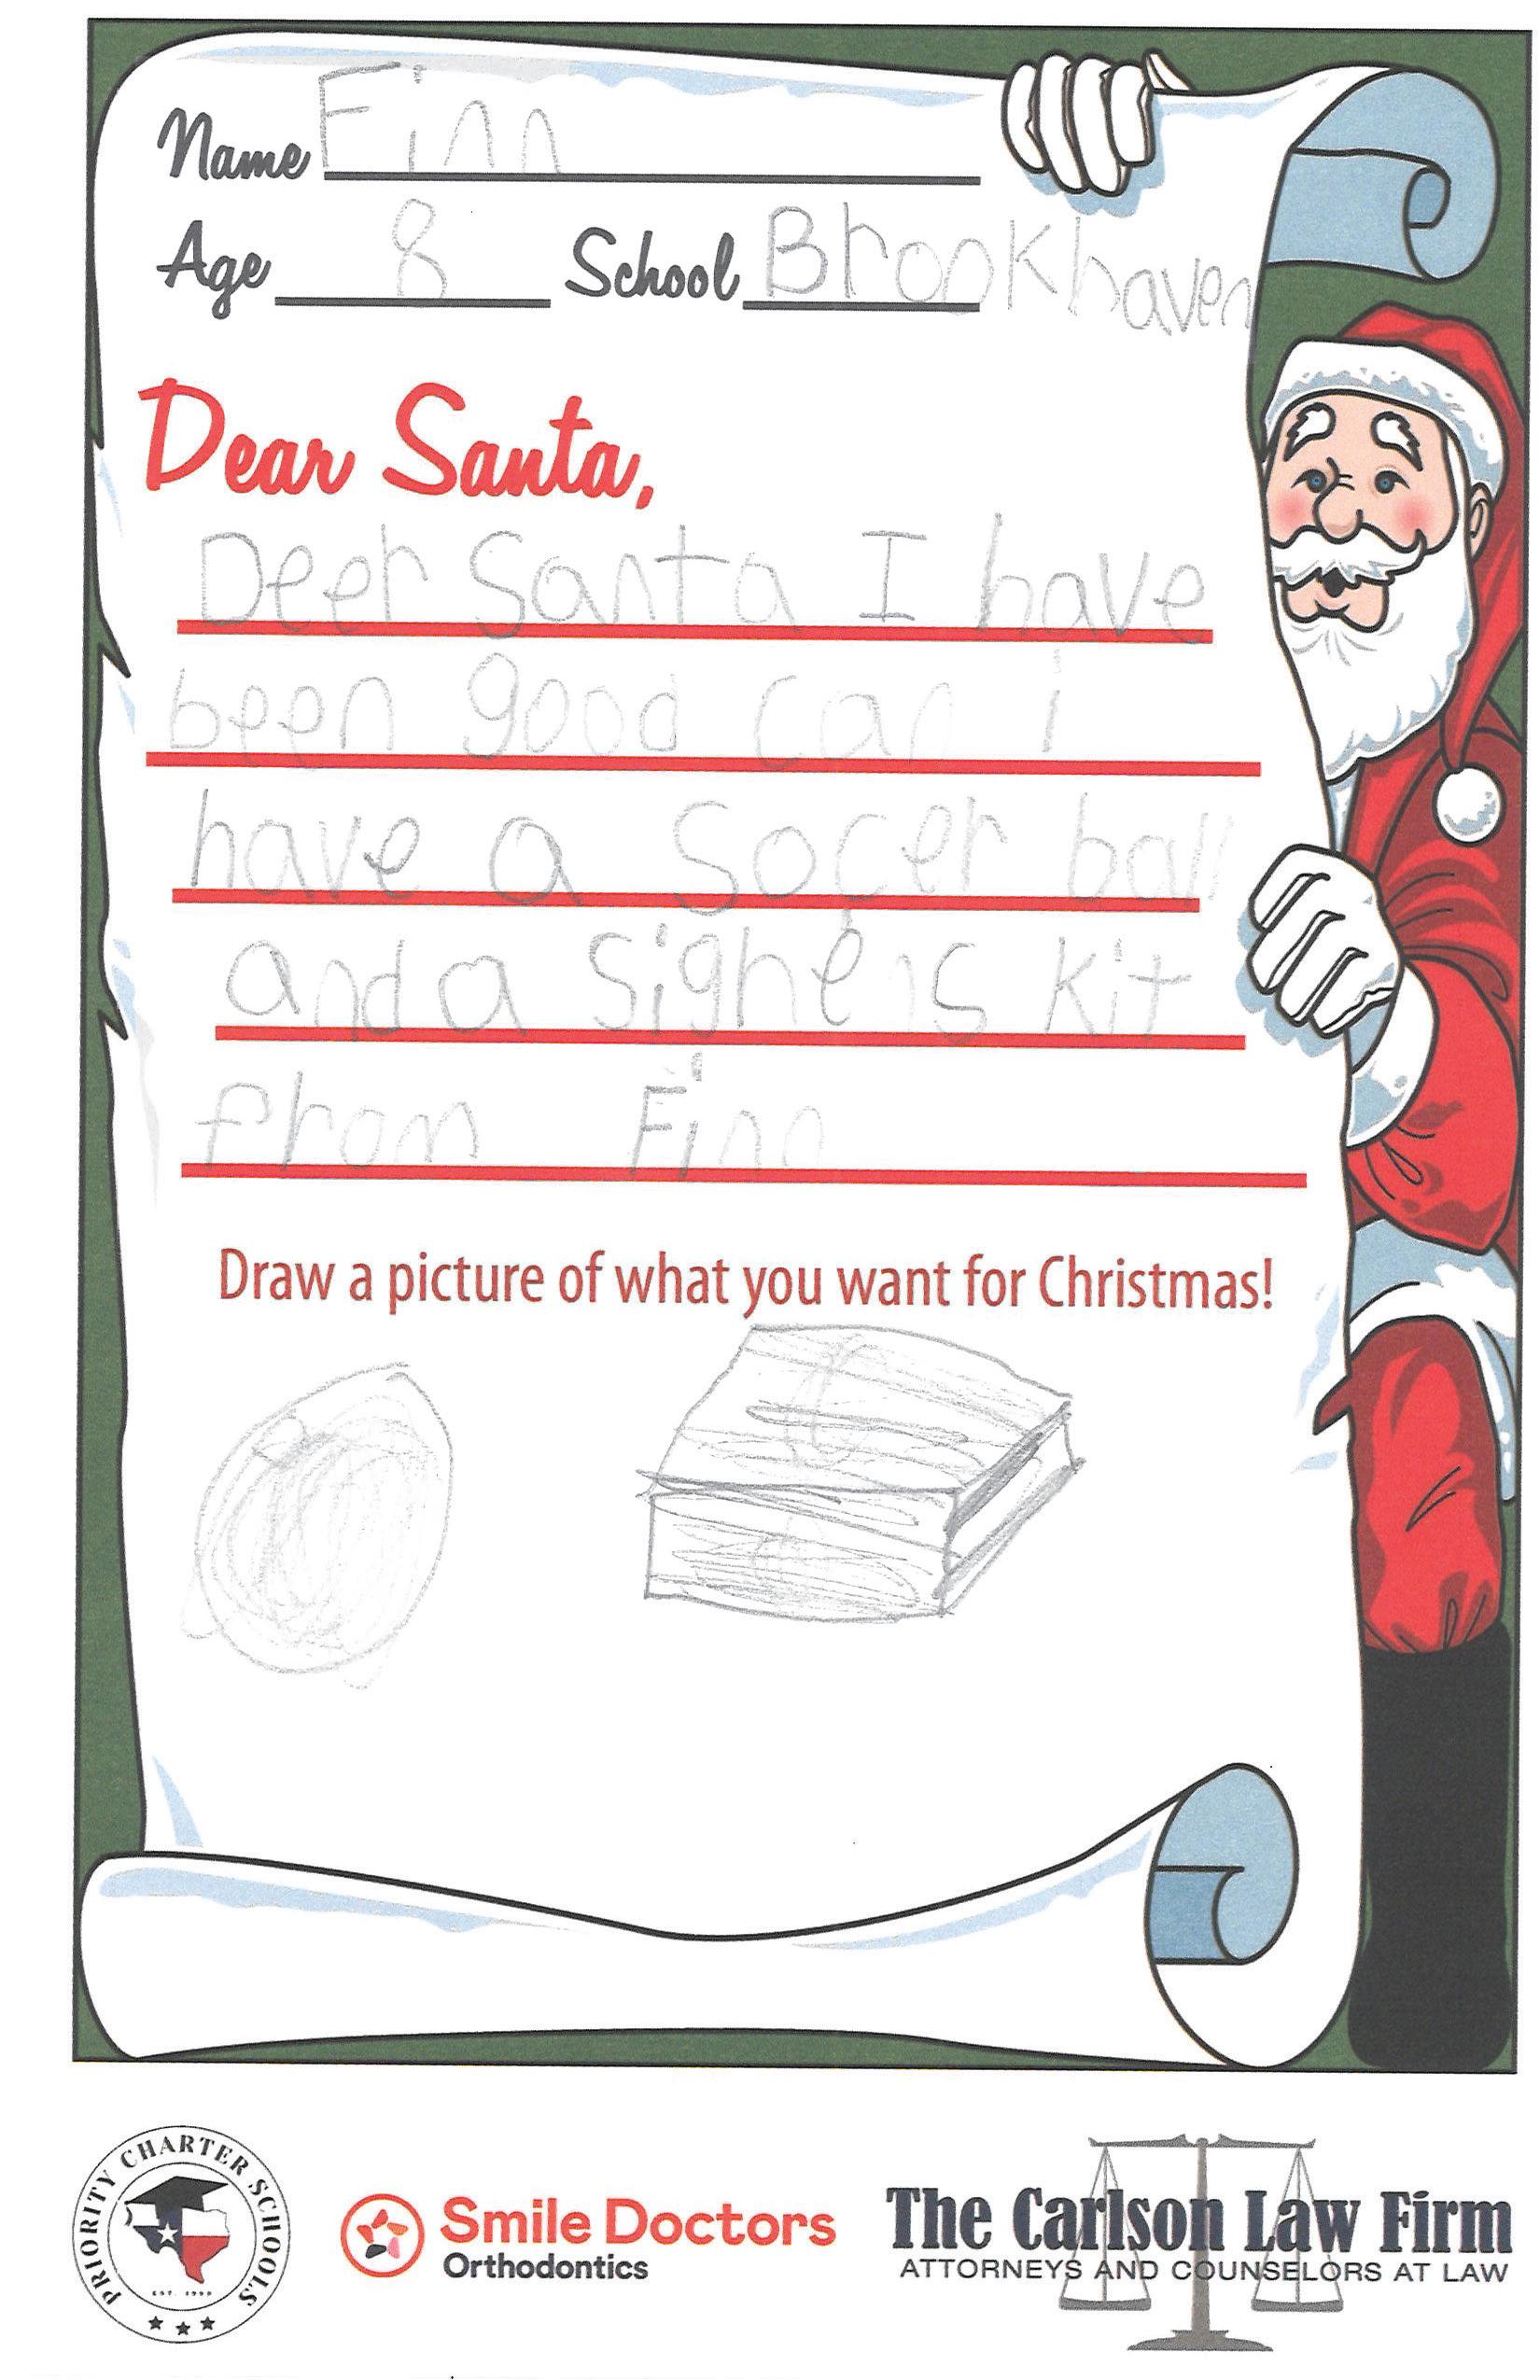 Name Finn
Age 8 School Brookhaven
Dear Santa,
Deer Santa I have
been good can i
have a Socer ball
and a Sighens Kit
from Finn
Draw a picture of what you want for Christmas!
PRIORITY CHARTER SCHOOLS
EST. 1999
Smile Doctors
Orthodontics
The Carlson Law Firm
ATTORNEYS AND COUNSELORS AT LAW